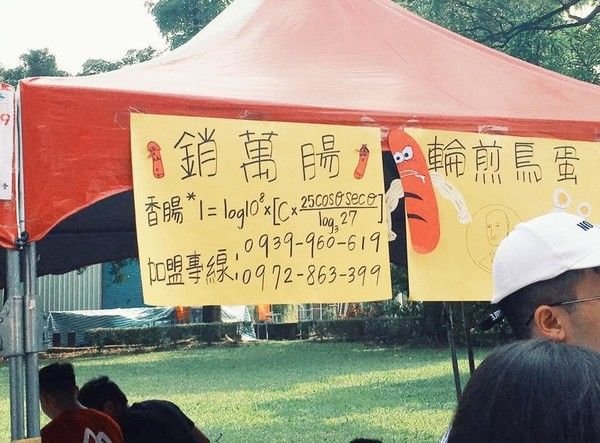 銷萬腸
香腸*1=log10⁸×[C×25cosθsecθ/log₃27]
:0939-960-619
加盟專線:0972-863-399
輪煎鳥蛋
NO
9